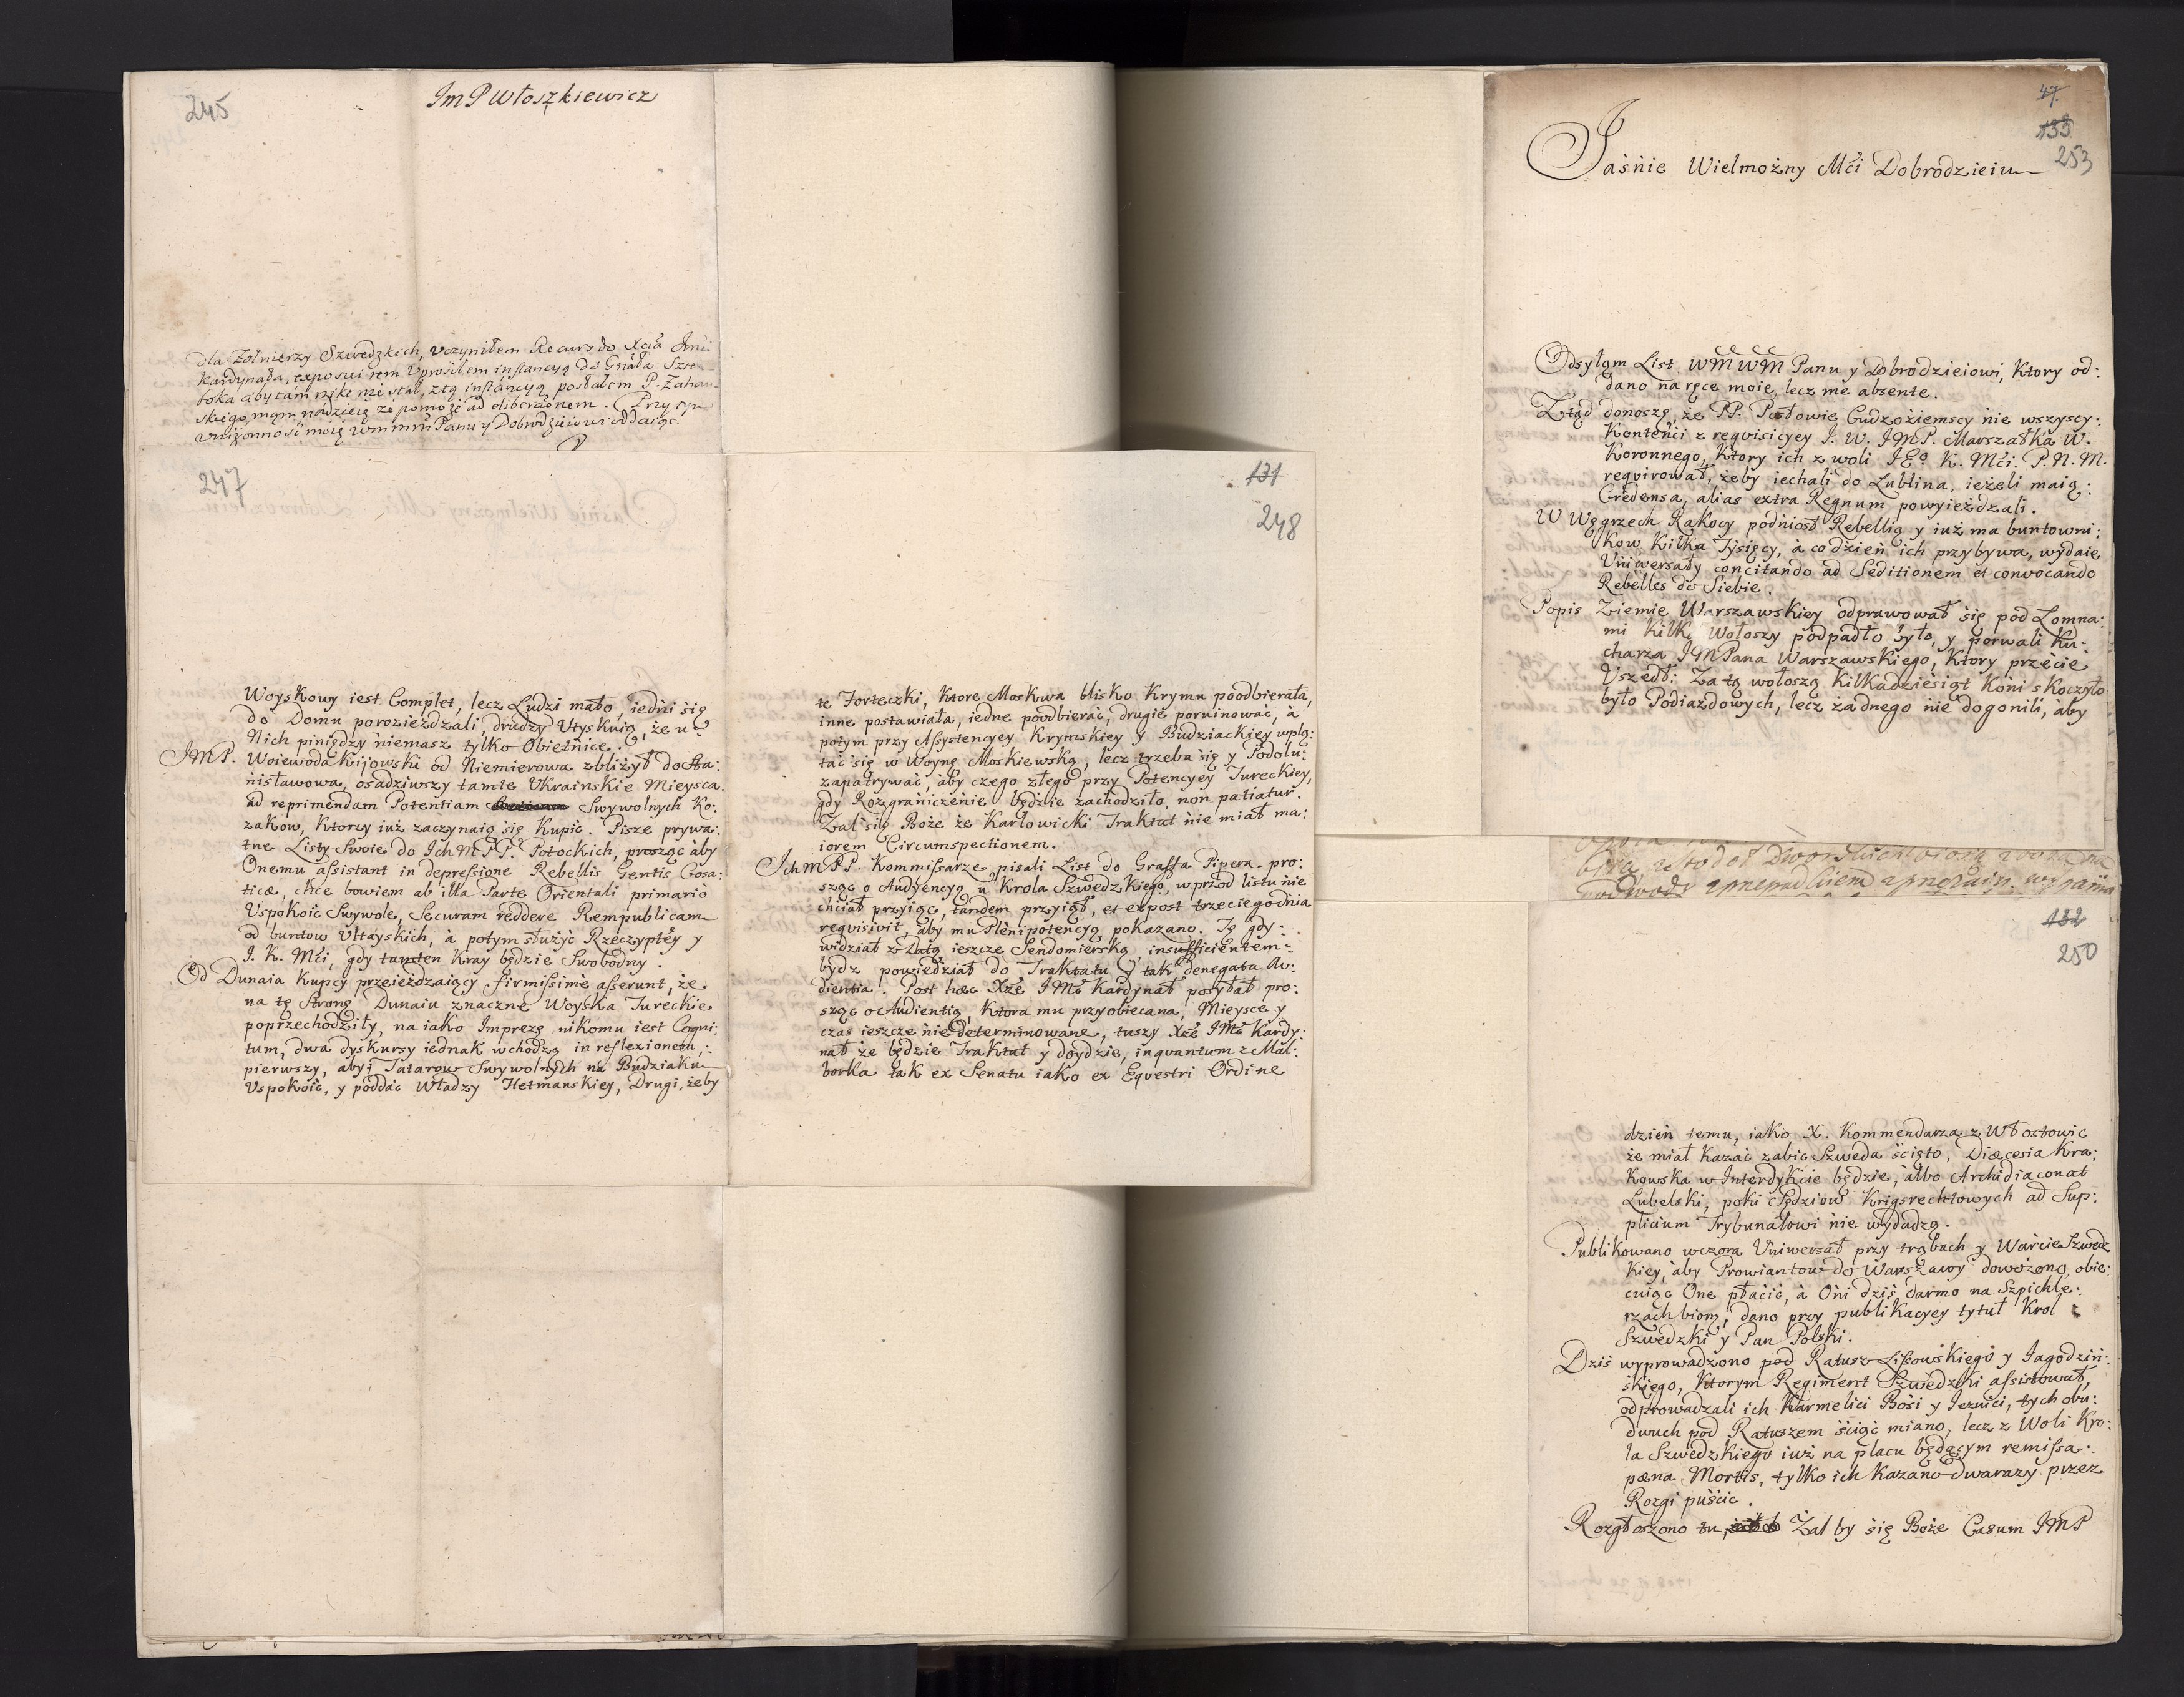 245
Im P Włoszkiewicz
dla Zołnierzy Szwedzkich, vczyniłem Recurs do Xcia Jmci
Kardynała, exposui rem Vprosiłem instancyą do Gnała
aby tam nikt nie stał, z tą instancyą posłałem P.
skiego, mąm nadzieię że pomoże ad
vniżonność moię WmmmPanu y Dobrodzieiowi oddaiąc.
247
Woyskowy iest Complet, lecz Ludzi mało, iedni się
do Domu porozieżdzali, drudzy Vtyskuią, że u
Nich piniędzy niemasz tylko Obietnice.
JMP. Woiewoda Kijowski od Niemierowa zbliżył do Sta:
nisławowa, osadziwszy tamte Vkrainskie Mieysca
ad reprimendam Potentiam Swywolnych Ko:
zakow, Ktorzy iuż zaczynaią się Kupić. Pisze prywa:
tne Listy Swoie do Ich MPP. Potockich, prosząc aby
Onemu assistant in depressione Rebellis Gentis Cosa:
ticæ, chce bowiem ab illa Parte Orientali primario
Vspokoić Swywole, Securam reddere Rempublicam
od buntow Vltayskich, à potym służyć Rzeczyptey y
J. K. Mći, gdy tamten Kray będzie Swobodny.
Od Dunaia Kupcy przeieżdzaiący firmissime asserunt, że
na tę Stronę Dunaiu znaczne Woyska Tureckie
poprzechodziły, na iako Imprezę nikomu iest Cogni:
tum, dwa dyskursy iednak wchodzą in reflexionem,:
pierwszy, aby Tatarow Swywolnych na Budziaku
Vspokoić, y poddać Władzy Hetmanskiey, Drugi, żeby
131
248
te Forteczki, Ktore Moskwa blisko Krymu poodbierała,
inne postawiała, iedne poodbierać, drugie poruinować, à
potym przy Assystencyey Krymskiey y Budziackiey wplą:
tać się w Woynę Moskiewską, lecz trzeba się y Podolu:
zapatrywać, aby czego złego przy Potencyey Tureckiey,
gdy Rozgraniczenie będzie zachodziło, non patiatur.
Zal się Boże że Karłowicki Traktat nie miał ma:
iorem Circumspectionem.
Ich MPP. Kommissarze pisali List do Graffa Pipera pro:
sząc o Audyencyą u Krola Szwedzkiego, wprzod listu nie
chciał przyiąc, tandem przyiął, et ex post trzeciego dnia
reqvisivit, aby mu Plenipotencyą pokazano. Tę gdy:
widział z Datą ieszcze Sendomierską, insufficientem:
bydz powiedział do Traktatu y tak denegata Au:
dientia. Post hæc Xże JMć Kardynał posyłał pro:
sząc o Audientią, Ktora mu przyobiecana, Mieysce y
czas ieszcze nie determinowane, tuszy Xże JMć Kardy:
nał że będzie Traktat y doydzie, inqvantum z Mal:
borka tak ex Senatu iako ex Eqvestri Ordine
47.
133
253
Jaśnie Wielmożny Mći Dobrodzieiu
Odsyłąm List WMWM Panu y Dobrodzieiowi, Ktory od:
dano na ręce moie, lecz me absente.
Ztąd donoszę, że PP. Posłowie Cudzoziemscy nie wszyscy:
Kontenći z reqvisicyey J. W. JMP. Marszałka W.
Koronnego, Ktory ich z woli JEo K. Mći. P. N. M.
reqvirował, żeby iechali do Lublina, ieżeli maią:
Credensa, alias extra Regnum powyieżdzali.
W Węgrzech Rakocy podniosł Rebellią y iuż ma buntowni:
Kow Kilka Tysięcy, à co dzień ich przybywa, wydaie
Vniwersały concitando ad Seditionem et convocando
Rebelles do Siebie.
Popis Ziemie Warszawskiey odprawował się pod Łomna:
mi Kilk Wołoszy podpadło było, y porwali Ku:
charza JMPana Warszawskiego, Ktory przecie
Vszedł: Za tą wołoszą Kilkadziesiąt Koni skoczyło
było Podiazdowych, lecz zadnego nie dogonili, aby
132
250
dzień temu, iako X. Kommendarza z Włostowic
że miał Kazać zabić Szweda ścięto, Diæcesia Kra:
Kowska w Interdykcie będzie, albo Archidiaconat
Lubelski, poki Sędziow Krigsrechtowych ad Sup:
plicium Trybunałowi nie wydadzą.
Publikowano wczora Vniwersał przy trąbach y Warcie Szwedz
Kiey, aby Prowiantow do Warszawy dowożono, obie:
cuiąc One płacić, à Oni dziś darmo na Szpichle:
rzach biorą, dano przy publikacyey tytuł Krol
Szwedzki y Pan Polski.
Dziś wyprowadzono pod Ratusz Lissowskiego y Jagodziń:
skiego, Ktorym Regiment Szwedzki assistował,
odprowadzali ich Karmelici Bosi y Jezuici, tych obu:
dwuch pod Ratuszem ściąć miano, lecz z Woli Kro:
la Szwedzkiego iuż na placu będącym remissa:
pæna Mortis, tylko ich Kazano dwarazy przez
Rozgi puścić.
Rozgłoszono tu, Zal by się Boże Casum JMP